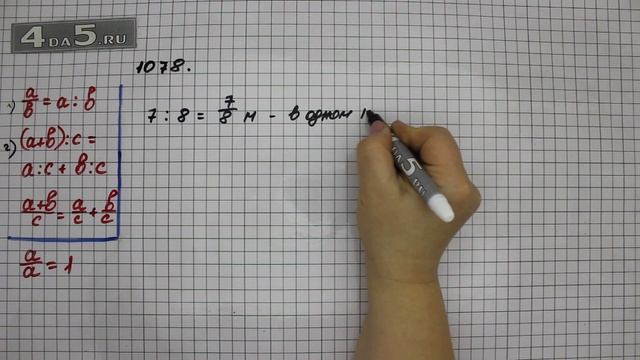 4DA5.RU
1078.
1) a/b = a : b
2) (a+b) : c =
a : c + b : c
a+b/c = a/c + b/c
a/a = 1
7 : 8 = 7/8 м - в одном
4DA5.RU